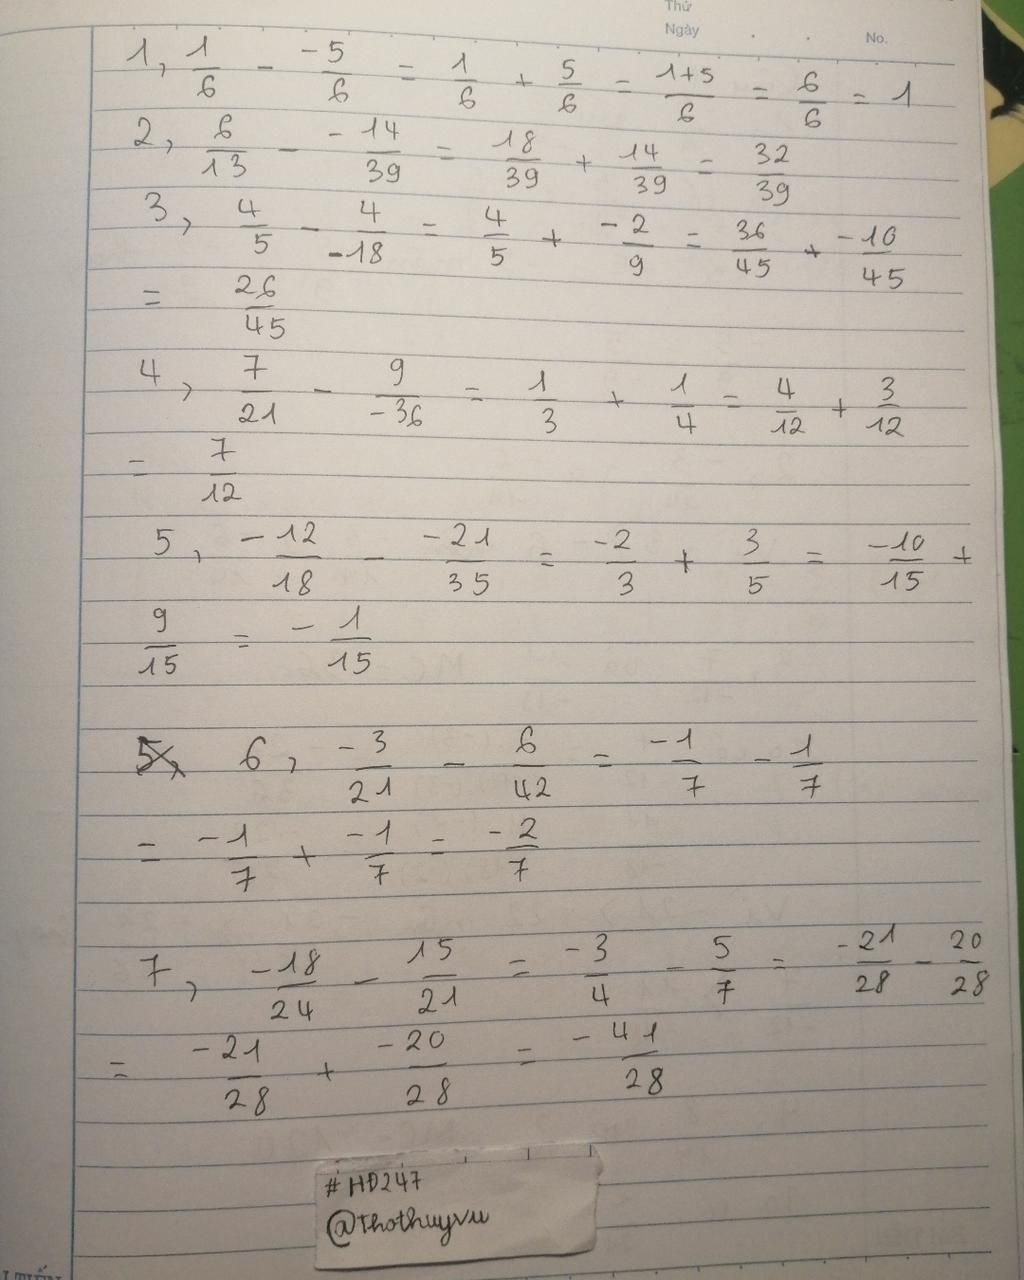 Thứ
Ngày . . No.
1, 1/6 - -5/6 = 1/6 + 5/6 = 1+5/6 = 6/6 = 1
2, 6/13 - -14/39 = 18/39 + 14/39 = 32/39
3, 4/5 - 4/-18 = 4/5 + -2/9 = 36/45 + -10/45
= 26/45
4, 7/21 - 9/-36 = 1/3 + 1/4 = 4/12 + 3/12
= 7/12
5, -12/18 - -21/35 = -2/3 + 3/5 = -10/15 +
9/15 = -1/15
5, 6, -3/21 - 6/42 = -1/7 - 1/7
= -1/7 + -1/7 = -2/7
7, -18/24 - 15/21 = -3/4 - 5/7 = -21/28 - 20/28
= -21/28 + -20/28 = -41/28
#HD247
@Thothuyvu